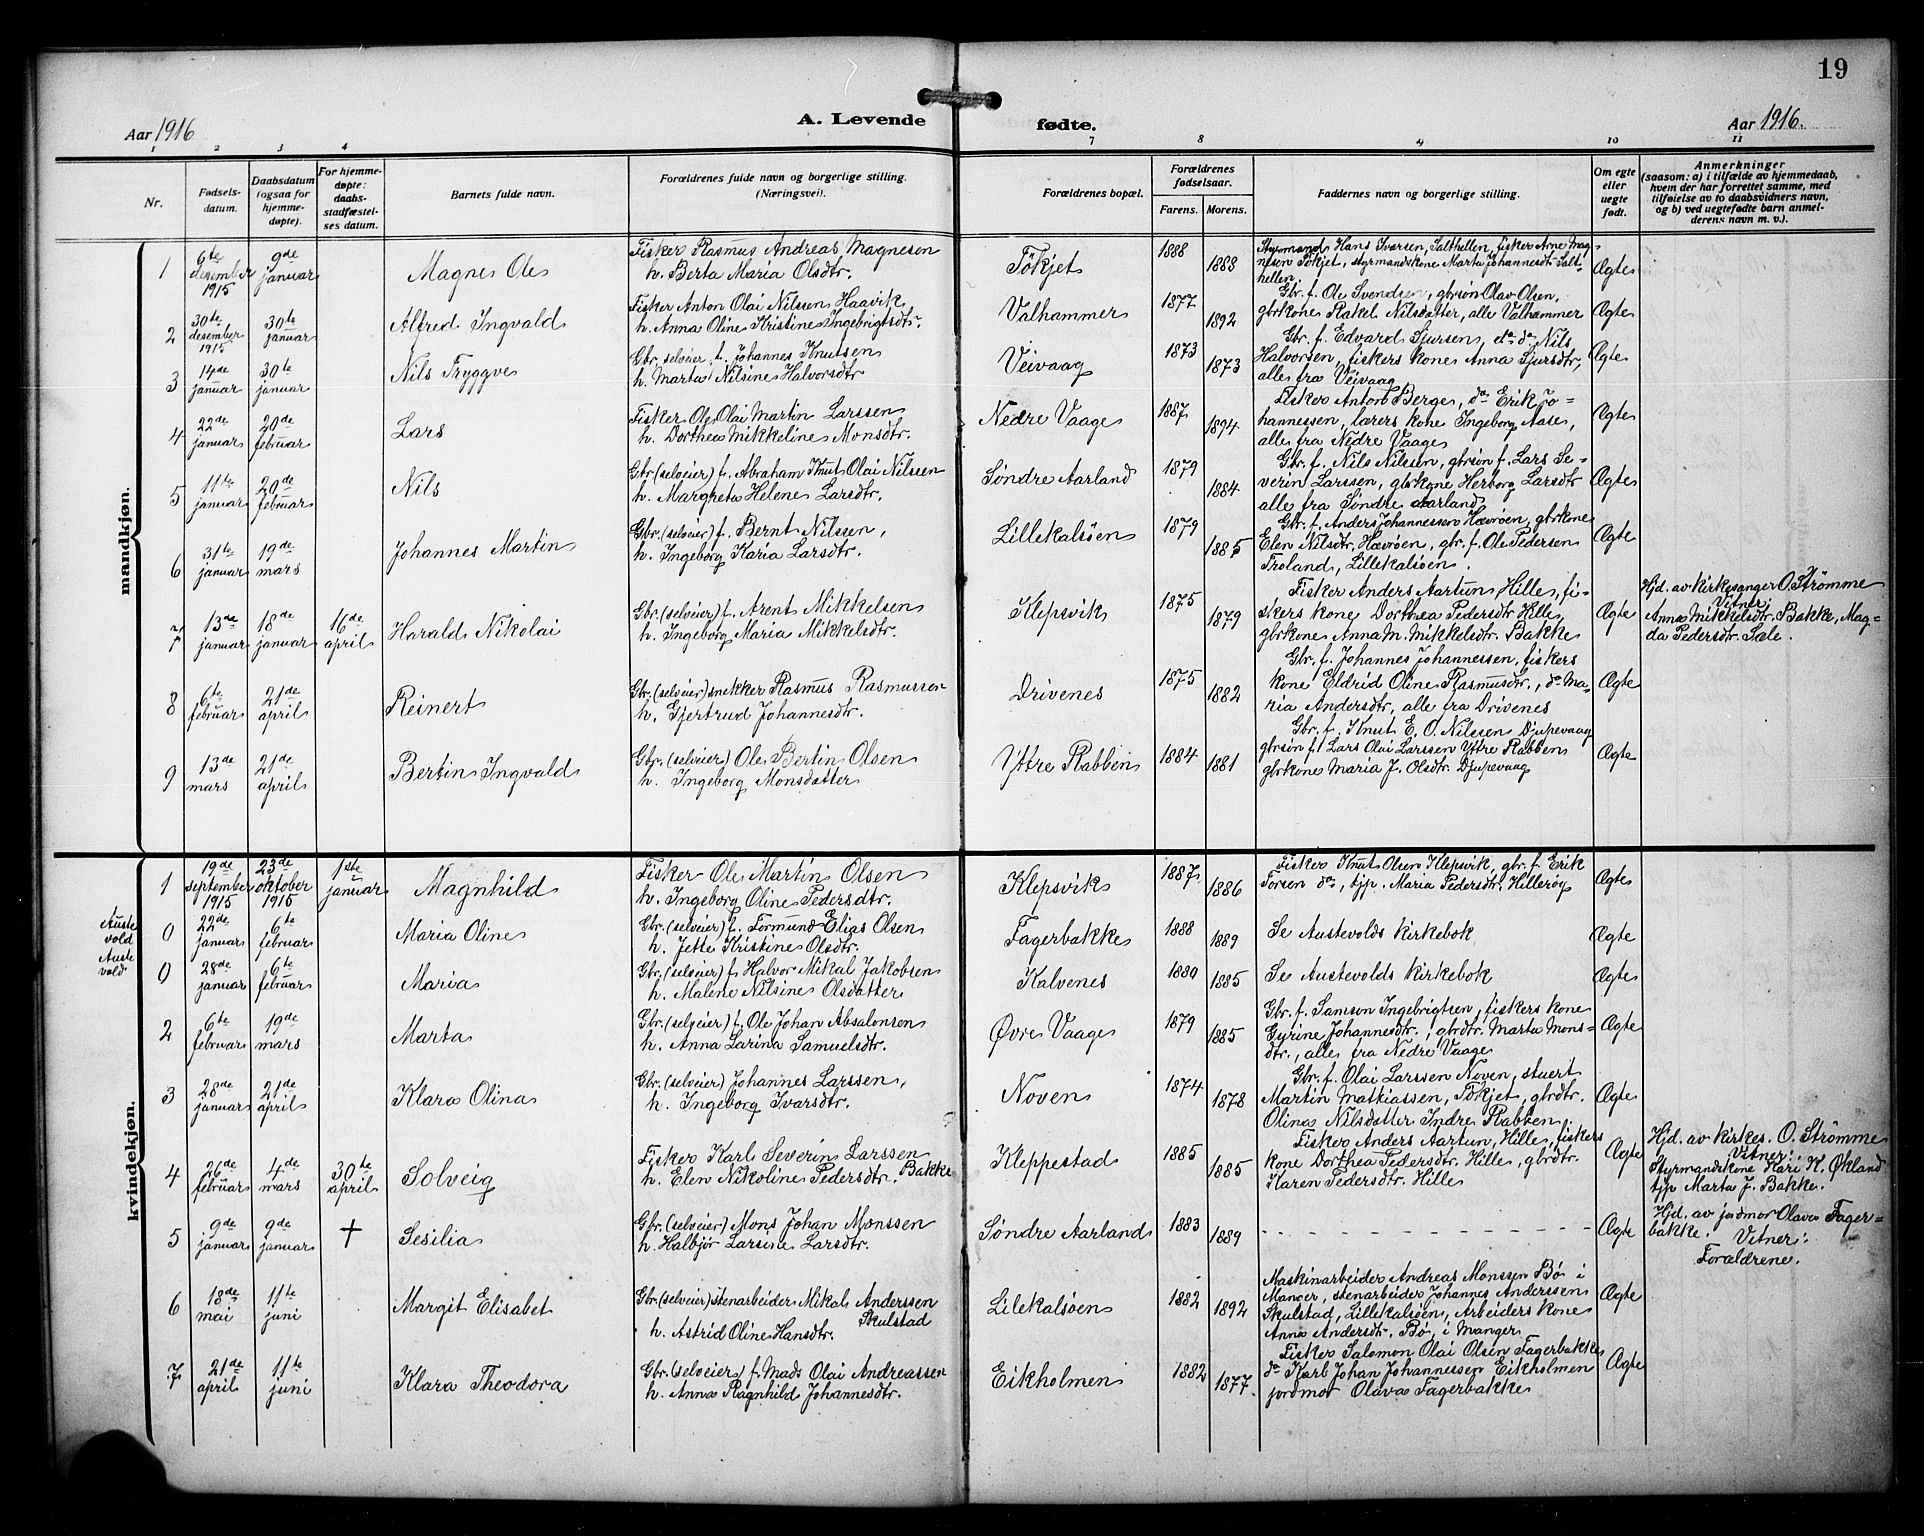 19
Aar 1916
A. Levende fødte.
Aar 1916.
1 2 3 4 7 8 9 10 11
Nr.
Fødsels-
datum.
Daabsdatum
(ogsaa for
hjemme-
døpte).
For hjemme-
døpte:
daabs-
stadfæstel-
ses datum.
Barnets fulde navn.
Forældrenes fulde navn og borgerlige stilling.
(Næringsvei).
Forældrenes bopæl.
Forældrenes
fødselsaar.
Farens. Morens.
Faddernes navn og borgerlige stilling.
Om egte
eller
uegte
født.
Anmerkninger
(saasom: a) i tilfælde av hjemmedaab,
hvem der har forrettet samme, med
tilføielse av to daabsvidners navn,
og b) ved uegtefødte barn anmel-
derens navn m. v.).
mandkjøn.
1
6te
desember
1915
9de
januar
Magne Ole
Fisker Rasmus Andreas Magnesen
h. Berta Maria Olsdtr.
Tökjet
1888
1888
Styrmand Hans Ivarsen, Salthellen, fisker Arne Mag-
nesen Tökjet, styrmandskone Marta Johannesdtr Salt-
hellen
Ægte
2
30te
desember
1915
30te
januar
Alfred Ingvald
Fisker Anton Olai Nilssen Haavik
h. Anna Oline Kristine Ingebrigtsdtr.
Valhammer
1877
1892
Gbr. f. Ole Svendsen, gbrsön Olav Olsen,
gbrkone Rakel Nilsdatter, alle Valhammer
Ægte
3
14de
januar
30te
januar
Nils Tryggve
Gbr. selveier f. Johannes Knutsen
h. Marta Nilsine Halvorsdtr
Veivaag
1873
1873
Gbr. f. Edvard Sjursen, do do Nils
Halvorsen, fiskers kone Anna Sjursdtr,
alle fra Veivaag
Ægte
4
22de
januar
20de
februar
Lars
Fisker Ole Olai Martin Larssen
h. Dorthea Mikkeline Monsdtr.
Nedre Vaage
1887
1894
Fisker Anton Berge, do Erik Jo-
hannessen, lærers kone Ingeborg Aase,
alle fra Nedre Vaage
Ægte
5
11te
januar
20de
februar
Nils
Gbr (selveier) f. Abraham Knut Olai Nilssen
h. Margreta Helene Larsdtr.
Søndre Aarland
1879
1884
Gbr. f. Nils Nilssen, gbrsön f. Lars Se-
verin Larssen, gbrkone Herborg Larsdtr
alle fra Søndre Aarland
Ægte
6
31te
januar
19de
mars
Johannes Martin
Gbr. (selveier) f. Bernt Nilssen,
h. Ingeborg Karia Larsdtr.
Lillekalsöen
1879
1885
Gbr. f. Anders Johannessen Hævröen, gbrkone
Elen Nilsdtr. Hævröen, gbr. f. Ole Pedersen
Troland, Lillekalsöen.
Ægte
7
13de
januar
18de
januar
16de
april
Harald Nikolai
Gbr. (selveier) f. Arent Mikkelsen
h. Ingeborg Maria Mikkelsdtr.
Klepsvik
1875
1879
Fisker Anders Aartun Hille, fi-
skers kone Dorthea Pedersdtr Hille,
gbrkone Anna M. Mikkelsdtr. Bakke
Ægte
Hjd. av kirkesanger O. Strömme
Vitner:
Anna Mikkelsdtr. Bakke, Mag-
da Pedersdtr. Sæle.
8
6te
februar
21de
april
Reinert
Gbr. (selveier) snekker Rasmus Rasmussen
h. Gjertrud Johannesdtr.
Drivenes
1875
1882
Gbr. f. Johannes Johannessen, fiskers
kone Eldrid Oline Rasmusdtr., do Ma-
ria Andersdtr, alle fra Drivenes
Ægte
9
13de
mars
21de
april
Bertin Ingvald
Gbr. (selveier) Ole Bertin Olsen
h. Ingeborg Monsdatter
Yttre Rabben
1884
1881
Gbr. f. Knut E. O. Nilssen Djupevaag
gbrsön f. Lars Olai Larssen Yttre Rabben
gbrkone Maria J. Olsdtr. Djupevaag
Ægte
kvindekjøn.
1
19de
september
1915
23de
oktober
1915
1ste
januar
Magnhild
Fisker Ole Martin Olsen
h. Ingeborg Oline Pedersdtr.
Klepsvik
1887
1886
Fisker Knut Olsen Klepsvik, gbr. f. Erik
Torsen do, tjp. Maria Pedersdtr. Hilleröy
Ægte
Auste
vold
0
22de
januar
6te
februar
Maria Oline
Gbr. (selveier) f. Tormund Elias Olsen
h. Jette Kristine Olsdtr.
Fagerbakke
1888
1889
Se Austevolds kirkebok
Ægte
Auste
vold
0
28de
januar
6te
februar
Maria
Gbr. (selveier) f. Halvor Mikal Jakobsen
h. Malene Nilsine Olsdatter
Kalvenes
1880
1885
Se Austevolds kirkebok
Ægte
2
6te
februar
19de
mars
Marta
Gbr. (selveier) f. Ole Johan Absalonsen
h. Anna Larina Samuelsdtr.
Øvre Vaage
1879
1885
Gbr. f. Samson Ingebrigtsen, fiskers kone
Gyrine Johannesdtr., gbrdtr. Marta Mons-
dtr., alle fra Nedre Vaage
Ægte
3
28de
januar
21de
april
Klara Olina
Gbr. (selveier) Johannes Larssen,
h. Ingeborg Ivarsdtr.
Noven
1874
1878
Gbr. f. Olai Larssen Noven, stuert
Martin Matkiassen, Tökjet, gbrdtr.
Olina Nilsdatter Indre Rabben
Ægte
4
26de
februar
4de
mars
30te
april
Solveig
Fisker Karl Severin Larssen
h. Elen Nikoline Pedersdtr. Bakke
Kleppestad
1885
1885
Fisker Anders Aartun, Hille, fiskers
kone Dorthea Pedersdtr. Hille, gbrdtr.
Karen Pedersdtr. Hille
Ægte
Hjd. av kirkes. O. Strömme
Vitner:
Styrmandskone Kari K. Økland
tjp Marta J. Bakke.
5
9de
januar
9de
januar
†
Sesilia
Gbr. (selveier) Mons Johan Monssen
h. Halbjör Larsine Larsdtr.
Søndre Aarland
1883
1889
- - - - - - - - - -
Ægte
Hjd. av jordmor Olava Fager-
bakke. Vitner:
Forældrene.
6
18de
mai
11te
juni
Margit Elisabet
Gbr. (selveier) stenarbeider Mikal Anderssen
Skulstad
h. Astrid Oline Hansdtr.
Lilekalsöen
1882
1892
Maskinarbeider Andreas Monssen Bö i
Manger, stenarbeider Johannes Anderssen
Skulstad, Lillekalsöen, Arbeiders kone
Anna Andersdtr. Bö, i Manger
Ægte
7
21de
april
11te
juni
Klara Theodora
Gbr. (selveier) f. Mads Olai Andreassen
h. Anna Ragnhild Johannesdtr.
Eikholmen
1882
1877
Fisker Salomon Olai Olsen Fagerbakke
do Karl Johan Johannessen Eikholmen
jordmor Olava Fagerbakke
Ægte